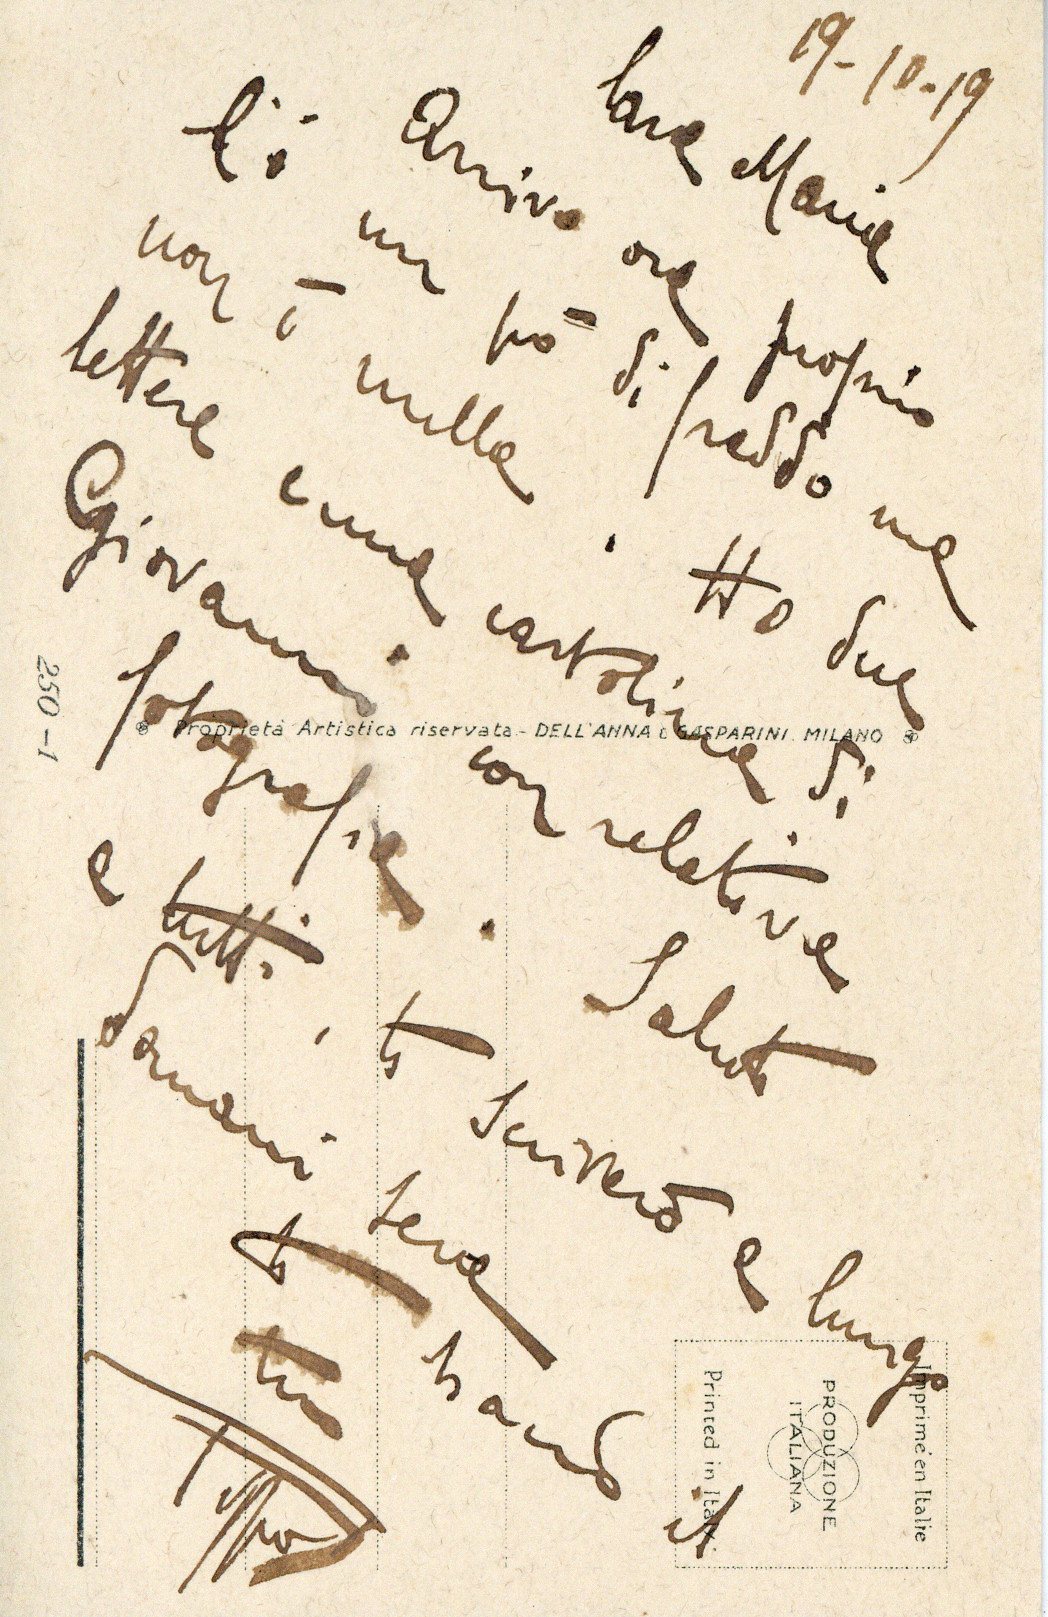 19-10-19
Cara Maria
Arrivo ora proprio
C'è un pò di freddo ma
non è nulla. Ho due
lettere e una cartolina di
Giovanni. con relativa
fotografia. Saluti
a tutti, ti scriverò a lungo
domani sera
ti il
tuo
250-1
Proprietà Artistica riservata - DELL'ANNA & GASPARINI. MILANO
Imprimé en Italie
PRODUZIONE
ITALIANA
Printed in Italy.